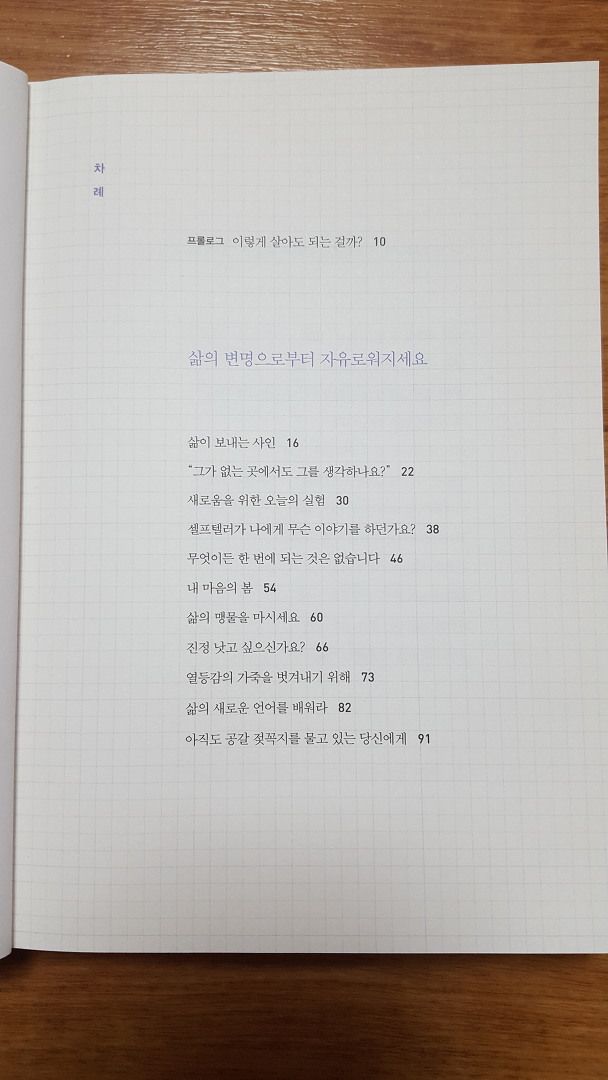 차
례
프롤로그 이렇게 살아도 되는 걸까? 10
삶의 변명으로부터 자유로워지세요
삶이 보내는 사인 16
“그가 없는 곳에서도 그를 생각하나요?” 22
새로움을 위한 오늘의 실험 30
셀프텔러가 나에게 무슨 이야기를 하던가요? 38
무엇이든 한 번에 되는 것은 없습니다 46
내 마음의 봄 54
삶의 맹물을 마시세요 60
진정 낫고 싶으신가요? 66
열등감의 가죽을 벗겨내기 위해 73
삶의 새로운 언어를 배워라 82
아직도 공갈 젖꼭지를 물고 있는 당신에게 91